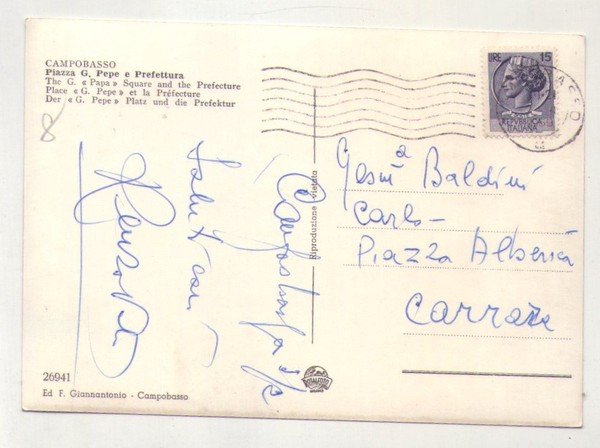 CAMPOBASSO
Piazza G. Pepe e Prefettura
The G. « Papa » Square and the Prefecture
Place « G. Pepe » et la Préfecture
Der « G. Pepe » Platz und die Prefektur
LIRE 15
REPVBBLICA
ITALIANA
8
Campobasso
Saluti cari
Riproduzione vietata
Baldini
Carlo -
Piazza Alberica
Carrara
26941
Ed F. Giannantonio - Campobasso